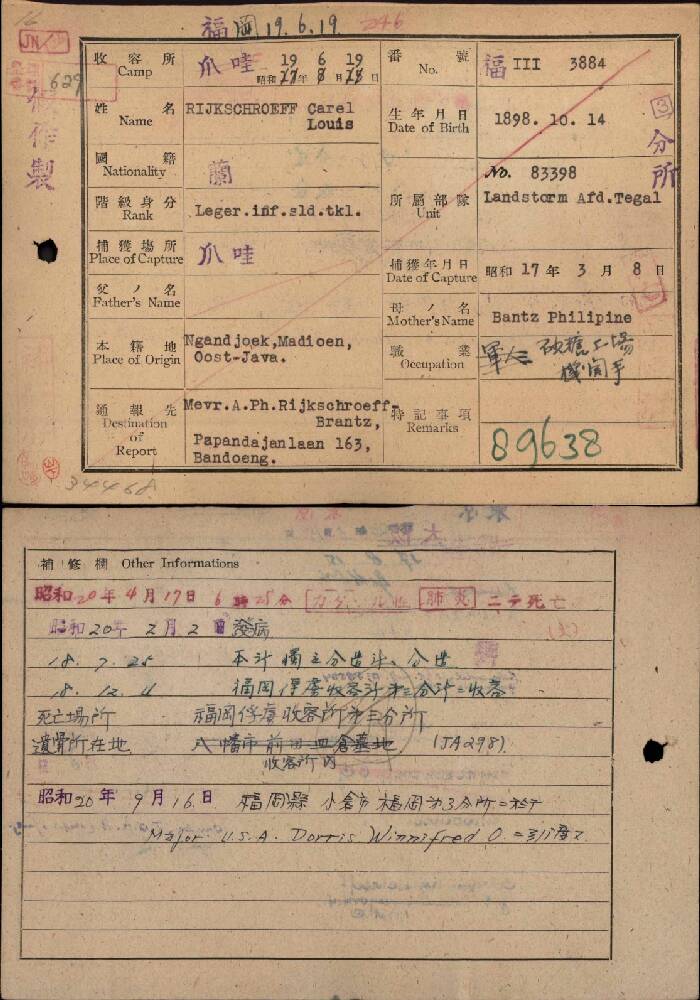 福岡 19.6.19. 246
JN
629
製作
收容所 Camp 爪哇 19 6 19
昭和 年 月 日
番號 No. 福 III 3884
姓名 Name RIJKSCHROEFF Carel
Louis
生年月日 Date of Birth 1898. 10. 14
3 分所
國籍 Nationality 蘭
階級身分 Rank Leger.inf.sld.tkl.
所屬部隊 Unit No. 83398
Landstorm Afd.Tegal
捕獲場所 Place of Capture 爪哇
捕獲年月日 Date of Capture 昭和 17 年 3 月 8 日
父ノ名 Father's Name
母ノ名 Mother's Name Bantz Philipine
本籍地 Place of Origin Ngandjoek,Madioen,
Oost-Java.
職業 Occupation 軍人 砂糖工場
機関手
通報先 Destination of Report Mevr.A.Ph.Rijkschroeff-
Brantz,
Papandajanlaan 163,
Bandoeng.
特記事項 Remarks 89638
34468
補修欄 Other Informations
昭和20年4月17日 6時25分 肺炎 ニテ死亡
昭和20年 2月2日 發病
18.7.25
18.12.4 福岡俘虜收容所第三分所ニ收容
死亡場所 福岡俘虜收容所第三分所
遺骨所在地 八幡市前田四倉墓地 (JA298)
收容所内
昭和20年9月16日 福岡縣小倉市福岡第3分所ニ於テ
Major U.S.A. Dorris Winnifred O. ニ引渡ス